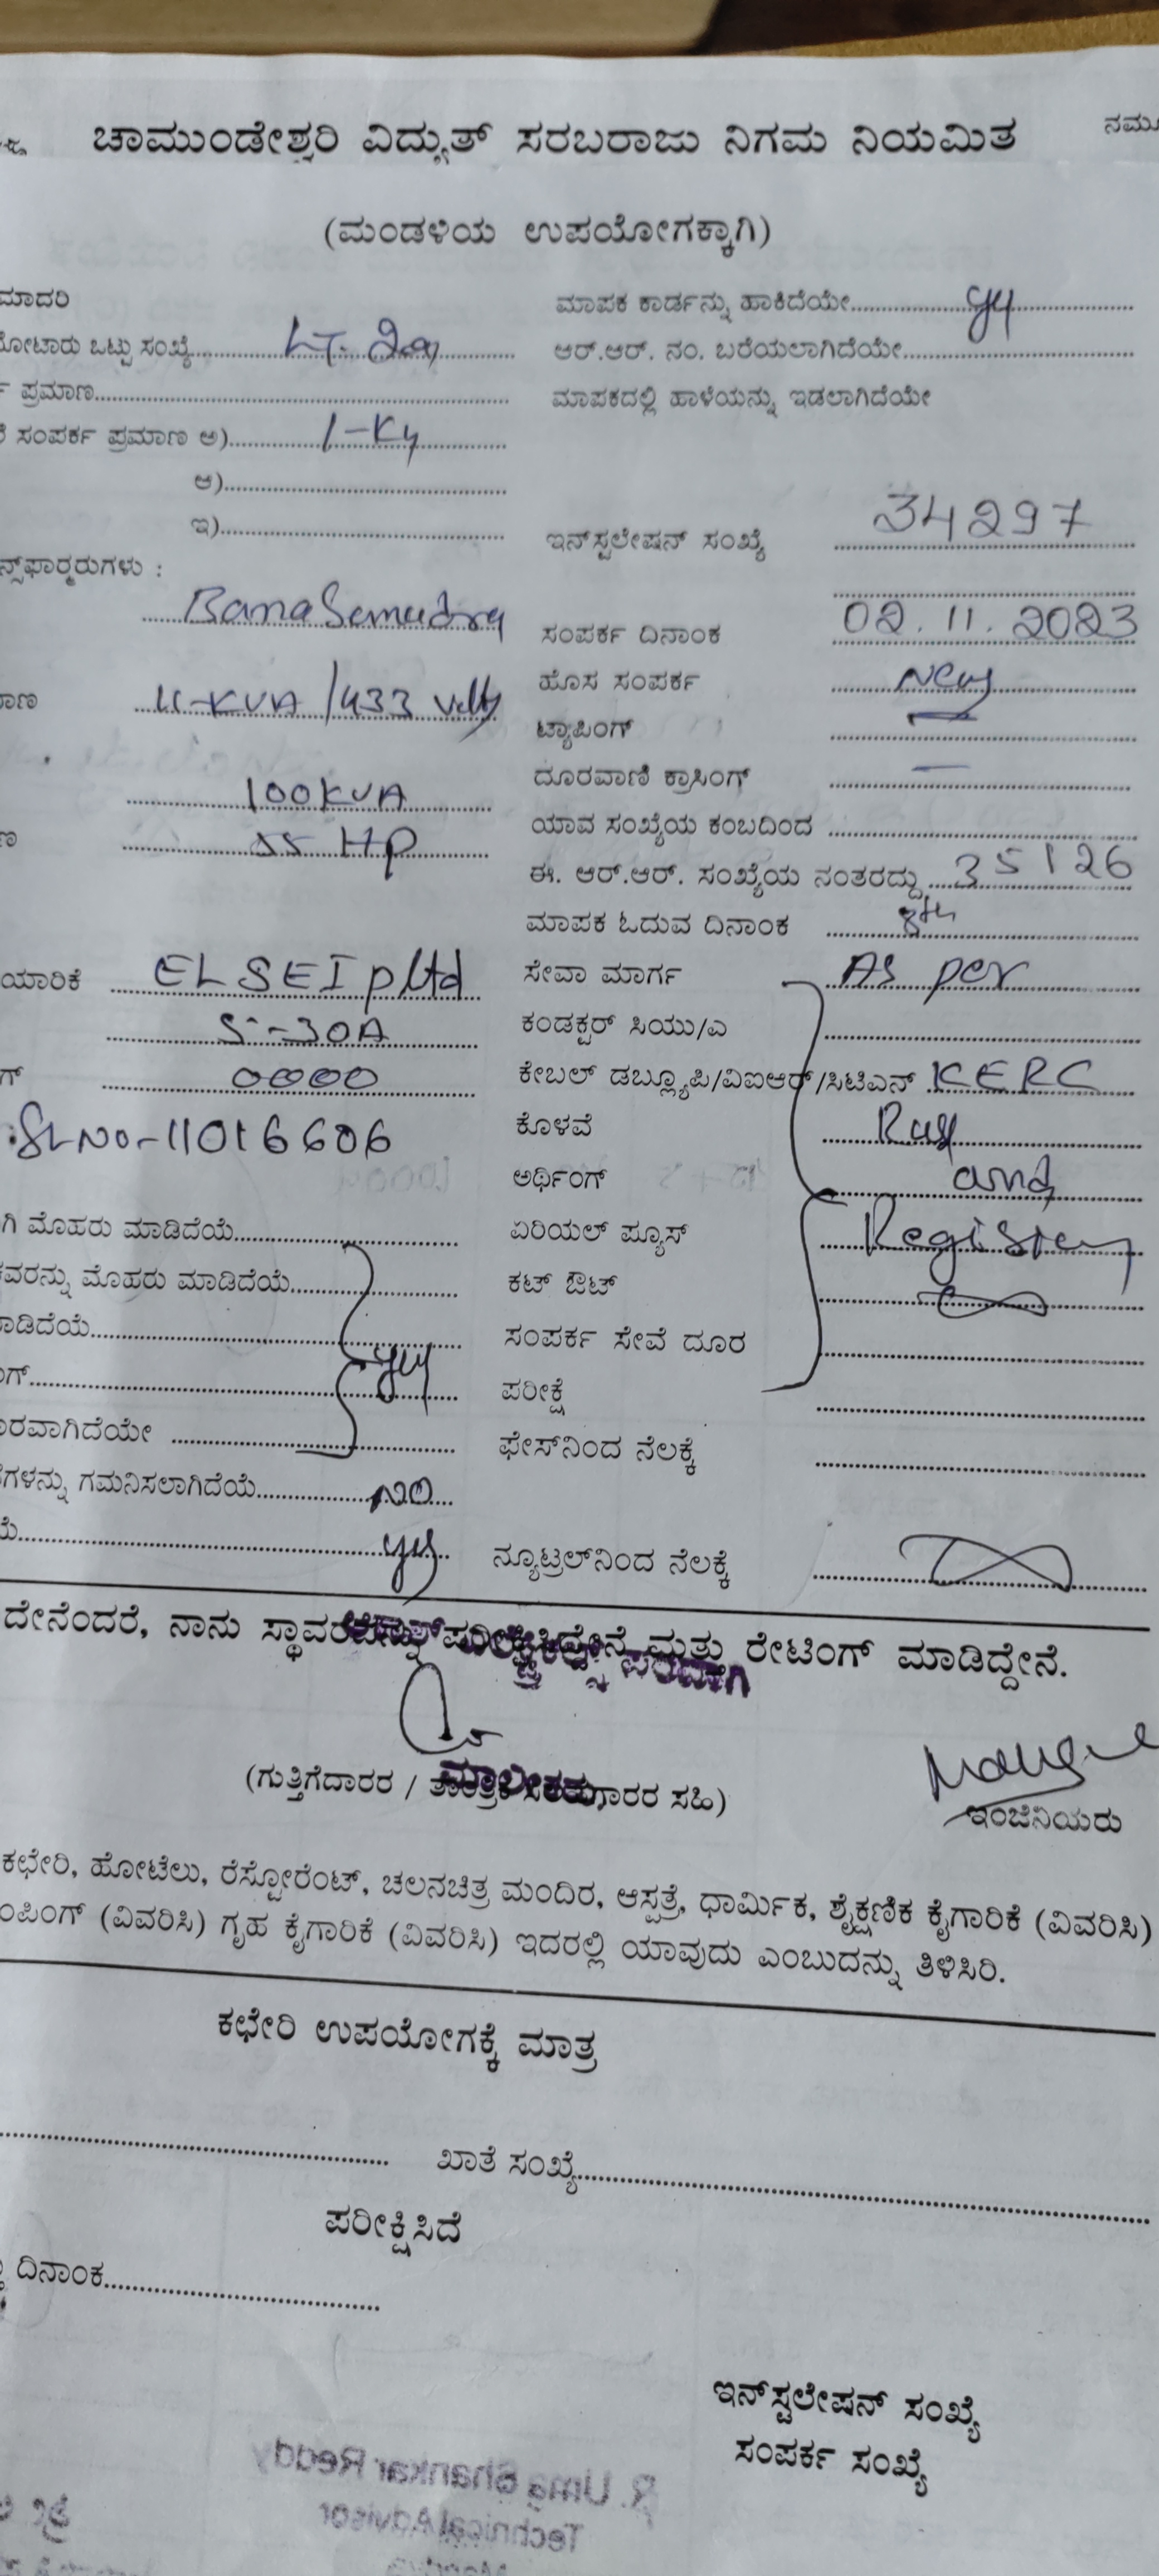 ಚಾಮುಂಡೇಶ್ವರಿ ವಿದ್ಯುತ್ ಸರಬರಾಜು ನಿಗಮ ನಿಯಮಿತ
ನಮೂ
(ಮಂಡಳಿಯ ಉಪಯೋಗಕ್ಕಾಗಿ)
ಮಾದರಿ
ಮಾಪಕ ಕಾರ್ಡನ್ನು ಹಾಕಿದೆಯೇ
ೋಟಾರು ಒಟ್ಟು ಸಂಖ್ಯೆ
ಆರ್.ಆರ್. ನಂ. ಬರೆಯಲಾಗಿದೆಯೇ
ಪ್ರಮಾಣ
ಮಾಪಕದಲ್ಲಿ ಹಾಳೆಯನ್ನು ಇಡಲಾಗಿದೆಯೇ
ಸಂಪರ್ಕ ಪ್ರಮಾಣ ಅ)
ಆ)
ಇ)
ಇನ್‌ಸ್ಟಲೇಷನ್ ಸಂಖ್ಯೆ 34297
ನ್ಸ್‌ಫಾರ್ಮರುಗಳು :
ಸಂಪರ್ಕ ದಿನಾಂಕ 02.11.2023
ಹೊಸ ಸಂಪರ್ಕ New
ಾಣ 11-KVA/433 Volts
ಟ್ಯಾಪಿಂಗ್
ದೂರವಾಣಿ ಕ್ರಾಸಿಂಗ್ —
100KVA
ಯಾವ ಸಂಖ್ಯೆಯ ಕಂಬದಿಂದ
HP
ಈ. ಆರ್.ಆರ್. ಸಂಖ್ಯೆಯ ನಂತರದ್ದು 35126
ಮಾಪಕ ಓದುವ ದಿನಾಂಕ 8th
ಯಾರಿಕೆ ELSEI p Ltd
ಸೇವಾ ಮಾರ್ಗ As per
5-30A
ಕಂಡಕ್ಟರ್ ಸಿಯು/ಎ
ಗ್ 0000
ಕೇಬಲ್ ಡಬ್ಲ್ಯೂಪಿ/ವಿಐಆರ್/ಸಿಟಿಎನ್ KERC
SL No-11016606
ಕೊಳವೆ
ಅರ್ಥಿಂಗ್ and
ಗಿ ಮೊಹರು ಮಾಡಿದೆಯೆ
ಏರಿಯಲ್ ಪ್ಯೂಸ್
ಕವರನ್ನು ಮೊಹರು ಮಾಡಿದೆಯೆ
ಕಟ್ ಔಟ್
ಾಡಿದೆಯೆ
ಸಂಪರ್ಕ ಸೇವೆ ದೂರ
ಗ್
ಪರೀಕ್ಷೆ
ಾರವಾಗಿದೆಯೇ
ಫೇಸ್‌ನಿಂದ ನೆಲಕ್ಕೆ
ಗಳನ್ನು ಗಮನಿಸಲಾಗಿದೆಯೆ NO
ಯೆ
ನ್ಯೂಟ್ರಲ್‌ನಿಂದ ನೆಲಕ್ಕೆ
ದೇನೆಂದರೆ, ನಾನು ಮತ್ತು ರೇಟಿಂಗ್ ಮಾಡಿದ್ದೇನೆ.
ಪರವಾಗಿ
ಮಾಲೀಕರು
(ಗುತ್ತಿಗೆದಾರರ / ಸಹಿ)
ಇಂಜಿನಿಯರು
ಕಛೇರಿ, ಹೋಟೆಲು, ರೆಸ್ಟೋರೆಂಟ್, ಚಲನಚಿತ್ರ ಮಂದಿರ, ಆಸ್ಪತ್ರೆ, ಧಾರ್ಮಿಕ, ಶೈಕ್ಷಣಿಕ ಕೈಗಾರಿಕೆ (ವಿವರಿಸಿ)
ಂಪಿಂಗ್ (ವಿವರಿಸಿ) ಗೃಹ ಕೈಗಾರಿಕೆ (ವಿವರಿಸಿ) ಇದರಲ್ಲಿ ಯಾವುದು ಎಂಬುದನ್ನು ತಿಳಿಸಿರಿ.
ಕಛೇರಿ ಉಪಯೋಗಕ್ಕೆ ಮಾತ್ರ
ಖಾತೆ ಸಂಖ್ಯೆ
ಪರೀಕ್ಷಿಸಿದೆ
ದಿನಾಂಕ
ಇನ್‌ಸ್ಟಲೇಷನ್ ಸಂಖ್ಯೆ
ಸಂಪರ್ಕ ಸಂಖ್ಯೆ
R. Uma Shankar Reddy
Technical Advisor